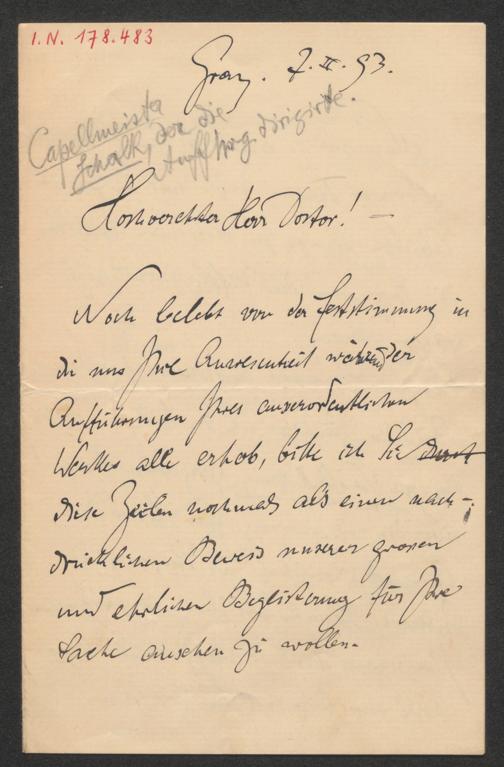 I.N. 178.483
Graz. 7.II.93.
Capellmeister
Schalk, der die
Aufführg dirigirte.
Hochverehrter Herr Doctor! —
Noch belebt von der Feststimmung in
die uns Ihre Anwesenheit während der
Aufführungen Ihres ausserordentlichen
Werkes alle erhob, bitte ich Sie
diese Zeilen nochmals als einen nach-
drücklichen Beweis unserer grossen
und ehrlichen Begeisterung für Ihre
Sache ansehen zu wollen.